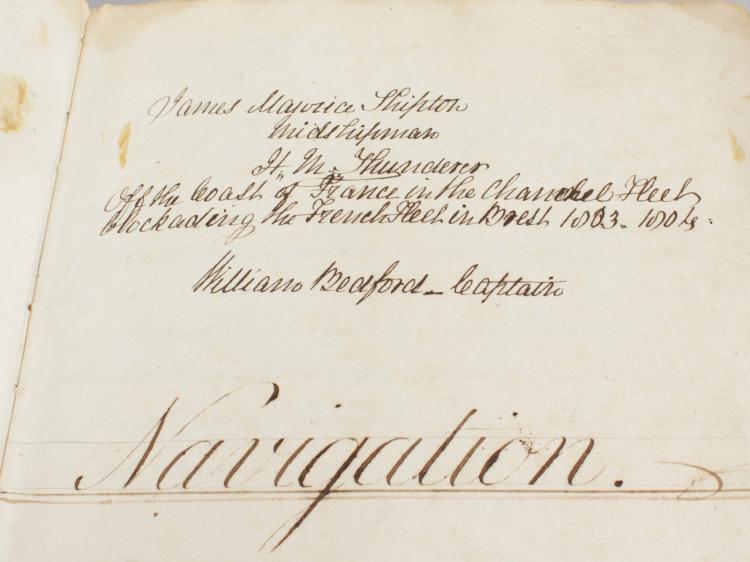 James Maurice Shipton
Midshipman
H. M. Thunderer
Off the Coast of France in the Channel Fleet
blockading the French Fleet in Brest 1803-1804.
William Bedford - Captain
Navigation.